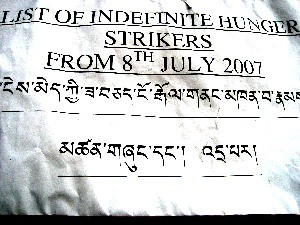 LIST OF INDEFINITE HUNGER
STRIKERS
FROM 8TH JULY 2007
ངེས་མེད་ཀྱི་ཟ་བཅད་ངོ་རྒོལ་གནང་མཁན་བ་རྣམས
མཚན་གཞུང་དང་། འདྲ་པར།